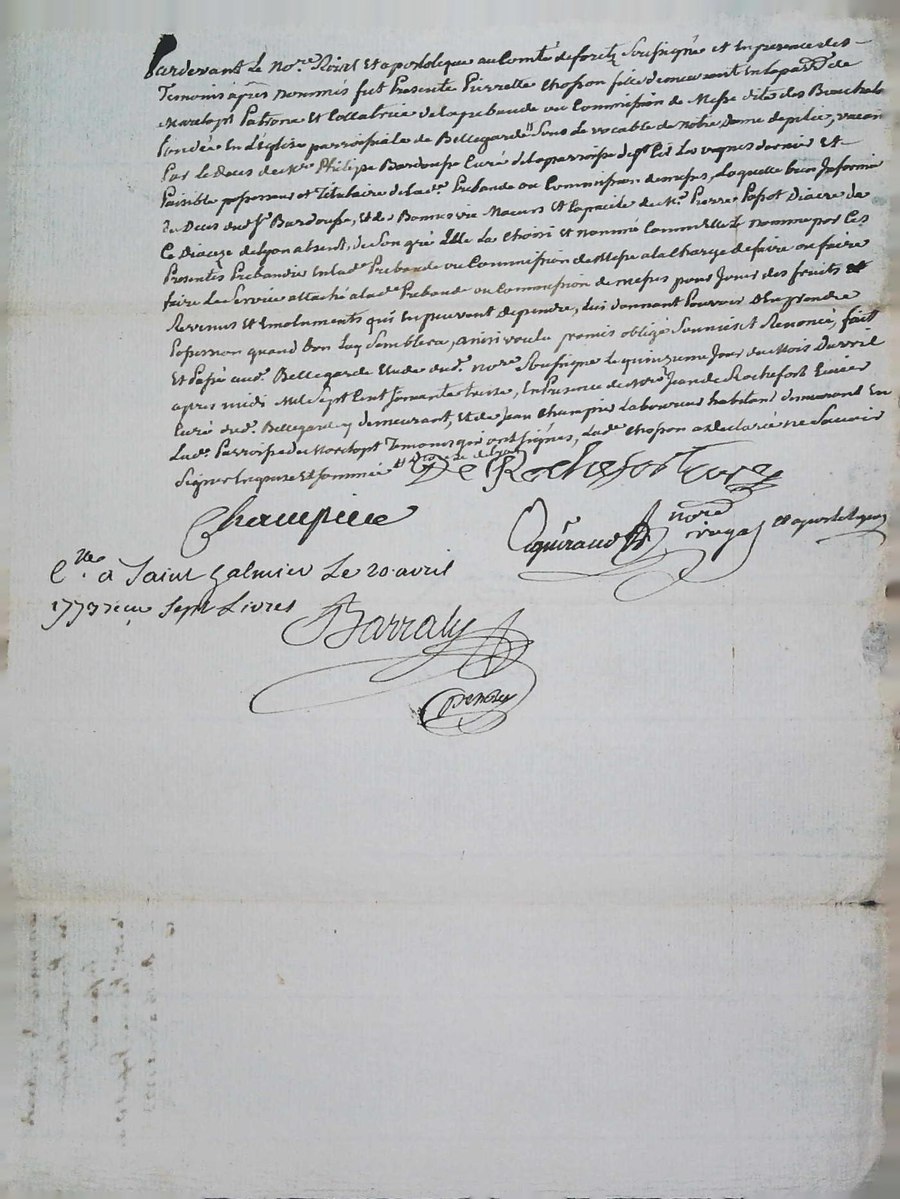 Pardevant Le No.re Roial Et apostolique au Comté de forez Sousigné et En presence des
Temoins apres nommés fut Presente Pierrette Chosson fille demeurant En la par.se de
Marclopt Patrone et Collatrice de la prebande ou Commission de Messe dite des
fondée En L'Eglise parroissiale de Bellegarde Sous le vocable de notre Dame de pitié, vacante
Par le Deces de M.re Philipe Bardousse Curé de la parroisse de St Cir Les vignes dernier Et
Paisible possesseur et Titulaire de lad.e Prebande ou Commission de messes, Laquelle bien Informée
du Deces dud. Sr Bardousse, et des Bonnes vie Moeurs et Capacité de M.re Pierre Diacre de
Ce Diocèze de Lyon absent, de Son gré Elle La Choisi et nommé Comme Elle nomme par Ces
Presentes Prebandier En lad.e Prebande ou Commission de Messe a la Charge de faire ou faire
faire Le Service attaché a lad.e Prebande ou Commission de messes pour Jouir des fruits et
Revenus Et Emoluments qui En peuvent dependre, Lui donnant Pouvoir d'En prendre
Possession quand Bon Luy Semblera, ainsi voulu promis obligé Soumis et Renoncé, fait
Et Passé aud. Bellegarde Etude dud. no.re Sousigné Le quinzieme Jour du Mois D'avril
apres midi Mil Sept Cent Soixante treize, En Presence de M.re Jean de Rochefort
Curé dud. Bellegarde y demeurant, Et de Jean Champier Laboureur habitant demeurant En
Lad. Parroisse de Marclopt Temoins qui ont Signés, Lad. Chosson a declaré ne Sçavoir
Signer Enquise Et Sommée
De Rochefort Curé
Champier
no.re
royal et apostolique
C.lé à Saint Galmier Le 20 avril
1773 reçu Sept Livres
Barraly